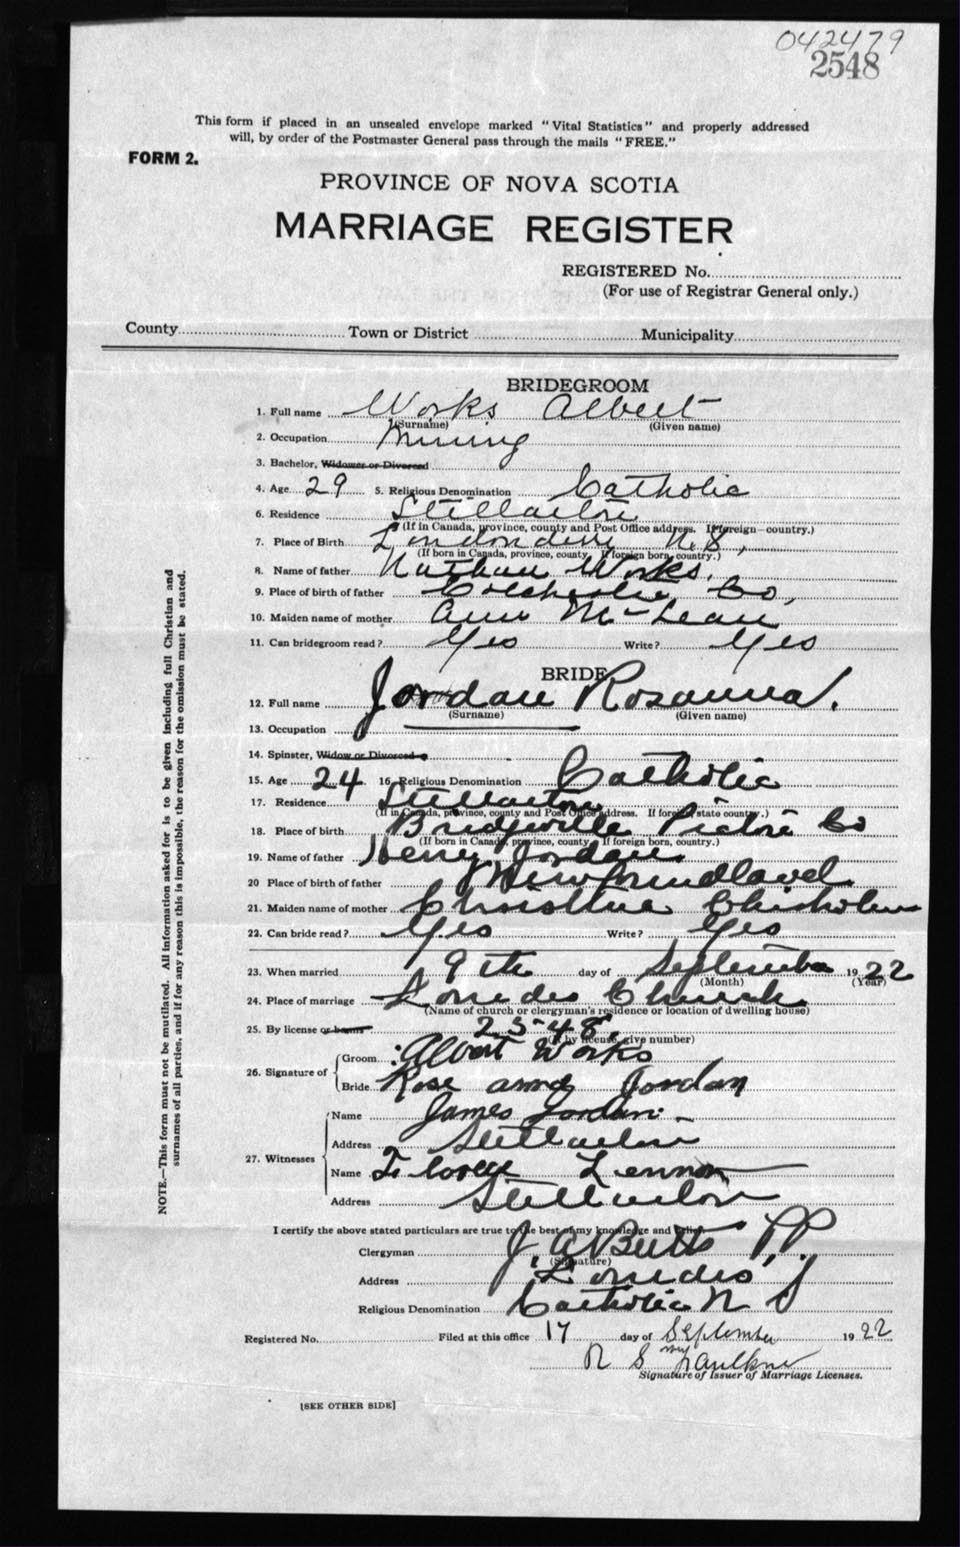 042479
2548
This form if placed in an unsealed envelope marked "Vital Statistics" and properly addressed
will, by order of the Postmaster General pass through the mails "FREE."
FORM 2.
PROVINCE OF NOVA SCOTIA
MARRIAGE REGISTER
REGISTERED No.
(For use of Registrar General only.)
County Town or District Municipality
BRIDEGROOM
1. Full name Works Albert
(Surname) (Given name)
2. Occupation Mining
3. Bachelor, Widower or Divorced
4. Age 29 5. Religious Denomination Catholic
6. Residence Stellarton
(If in Canada, province, county and Post Office address. If foreign—country.)
7. Place of Birth Londonderry N.S,
(If born in Canada, province, county If foreign born, country.)
8. Name of father Nathan Works.
9. Place of birth of father Colchester Co,
10. Maiden name of mother Ann McLean
11. Can bridegroom read? Yes Write? Yes
BRIDE
12. Full name Jordan Rosanna.
(Surname) (Given name)
13. Occupation
14. Spinster, Widow or Divorced
15. Age 24 16. Religious Denomination Catholic
17. Residence Stellarton
(If in Canada, province, county and Post Office address. If foreign, state country.)
18. Place of birth Bridgeville Pictou Co
(If born in Canada, province, county If foreign born, country.)
19. Name of father Henry Jordan.
20 Place of birth of father Newfoundland
21. Maiden name of mother Christina Chisholm
22. Can bride read? Yes Write? Yes
23. When married 9th day of September 1922
(Month) (Year)
24. Place of marriage Lourdes Church
(Name of church or clergyman's residence or location of dwelling house)
25. By license or banns 2548
(If by license, give number)
26. Signature of
Groom Albert Works
Bride Rose anna Jordan
27. Witnesses
Name James Jordan
Address Stellarton
Name Lennon
Address Stellarton
I certify the above stated particulars are true to the best of my knowledge and belief.
Clergyman J. A. Butts P.P.
(Signature)
Address Lourdes
Religious Denomination Catholic N S
Registered No. Filed at this office 17 day of September 1922
R S Faulkner
Signature of Issuer of Marriage Licenses.
[SEE OTHER SIDE]
NOTE.—This form must not be mutilated. All information asked for is to be given including full Christian and
surnames of all parties, and if for any reason this is impossible, the reason for the omission must be stated.